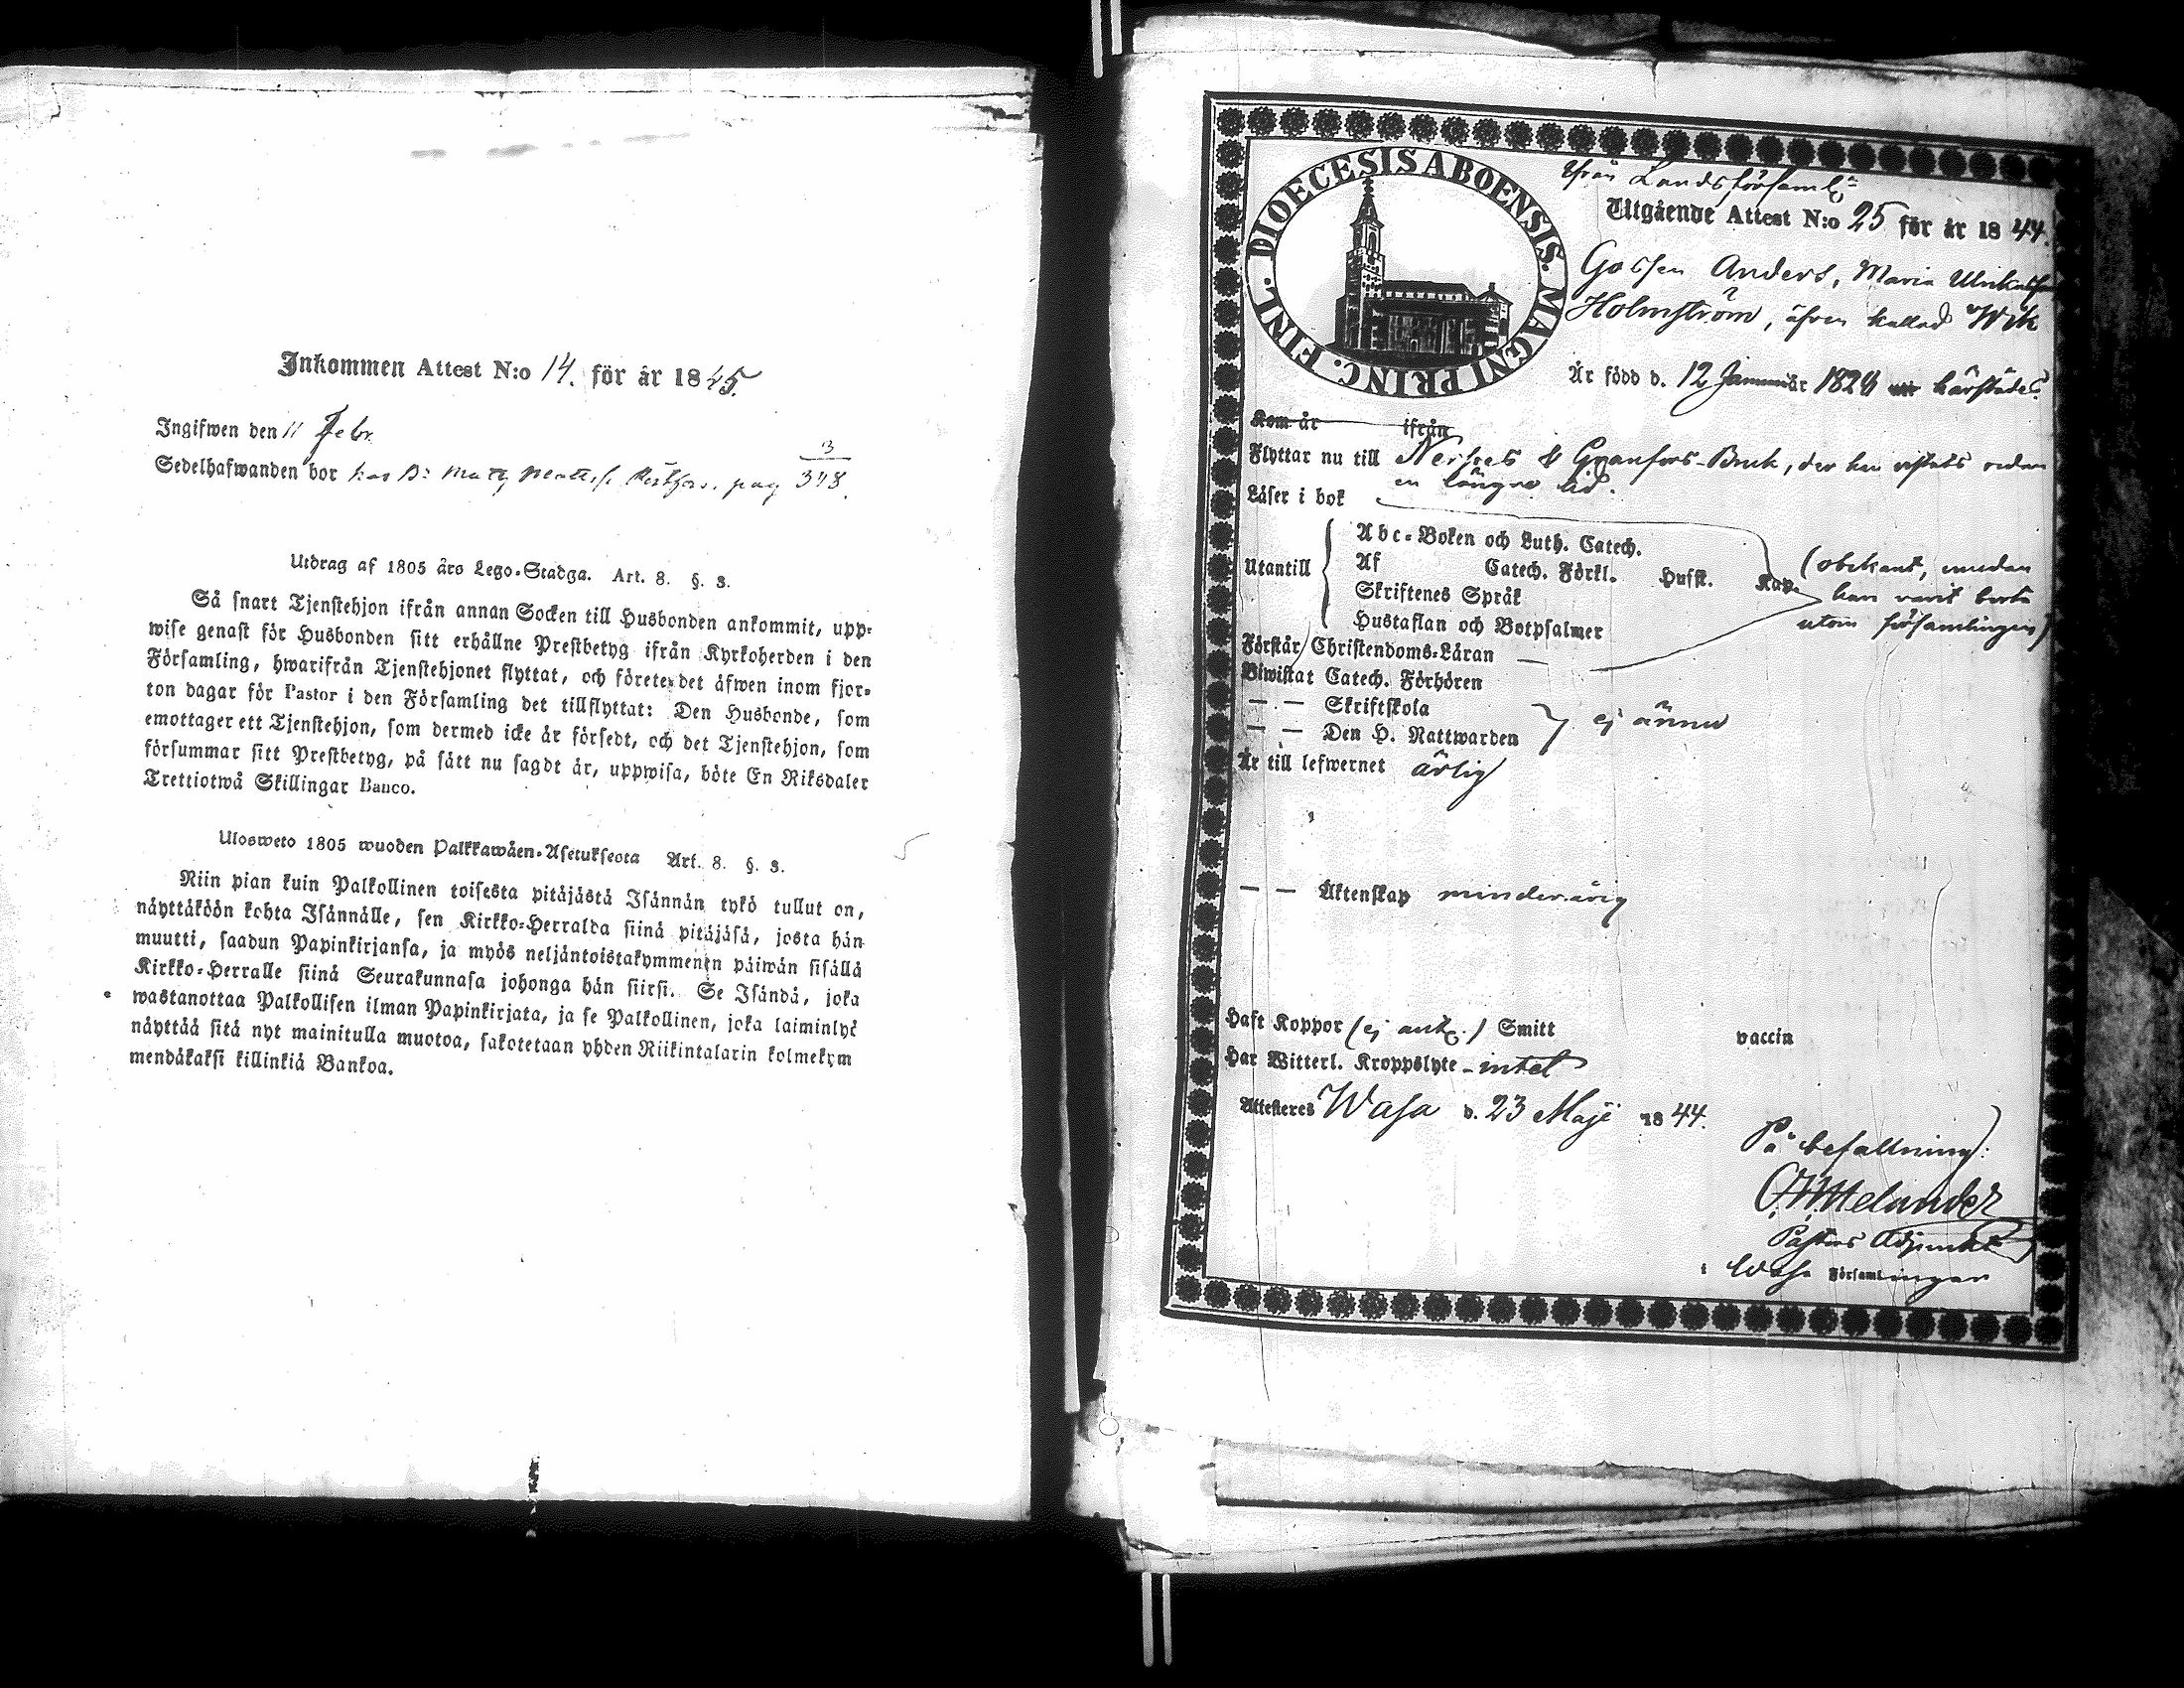 Inkommen Attest N:o 14. för år 1845.
Ingifwen den 11 Febr.
Sedelhafwanden bor hos B: Matts pag 3/348.
Utdrag af 1805 års Lego-Stadga. Art. 8. §. 3.
Så snart Tjenstehjon ifrån annan Socken till Husbonden ankommit, upp-
wise genast för Husbonden sitt erhållne Prestbetyg ifrån Kyrkoherden i den
Församling, hwarifrån Tjenstehjonet flyttat, och förete det åfwen inom fjor-
ton dagar för Pastor i den Församling det tillflyttat: Den Husbonde, som
emottager ett Tjenstehjon, som dermed icke år försedt, och det Tjenstehjon, som
försummar sitt Prestbetyg, på sått nu sagdt år, uppwisa, böte En Riksdaler
Trettiotwå Skillingar Banco.
Ulosweto 1805 wuoden Palkkawåen-Asetuksesta Art. 8. §. 3.
Niin pian kuin Palkollinen toisesta pitåjåstå Isånnån tykö tullut on,
nåyttåköön kohta Isånnålle, sen Kirkko-Herralda siinå pitåjåså, josta hån
muutti, saadun Papinkirjansa, ja myös neljåntoistakymmenen påiwån sisållå
Kirkko-Herralle siinå Seurakunnasa johonga hån siirsi. Se Isåndå, joka
wastanottaa Palkollisen ilman Papinkirjata, ja se Palkollinen, joka laiminlyö
nåyttåå sitå nyt mainitulla muotoa, sakotetaan yhden Riikintalarin kolmekym
mendåkaksi killinkiå Bankoa.
DIOECESIS ABOENSIS. MAGNI PRINC. FINL.
ifrån Landsförsaml:
Utgående Attest N:o 25 för år 1844.
Gossen Anders, Maria Ulrikas
Holmström, äfven kallad Wik
År född d. 12 Januar 1828 härstädes.
Kom år ifrån
Flyttar nu till Nerpes & Granfors-Bruk, der han vistats redan
en längre tid.
Låser i bok
Abc-Boken och Luth. Catech.
Utantill Af Catech. Förkl. Husst. Kap.
Skriftenes Språk
Hustaflan och Botpsalmer
(obekant, emedan
han varit borta
utom församlingen)
Förstår Christendoms-Låran
Biwistat Catech. Förhören
— — Skriftskola
— — Den H. Nattwarden
ej ännu
År till lefwernet ärlig
— — Åktenskap minderårig
Haft Koppor (ej ant.) Smitt vaccin
Har Witterl. Kroppslyte - intet
Attesteres Wasa d. 23 Maji 1844.
På befallning:
Melander
Pastors Adjunkt
i Wasa Församlingar